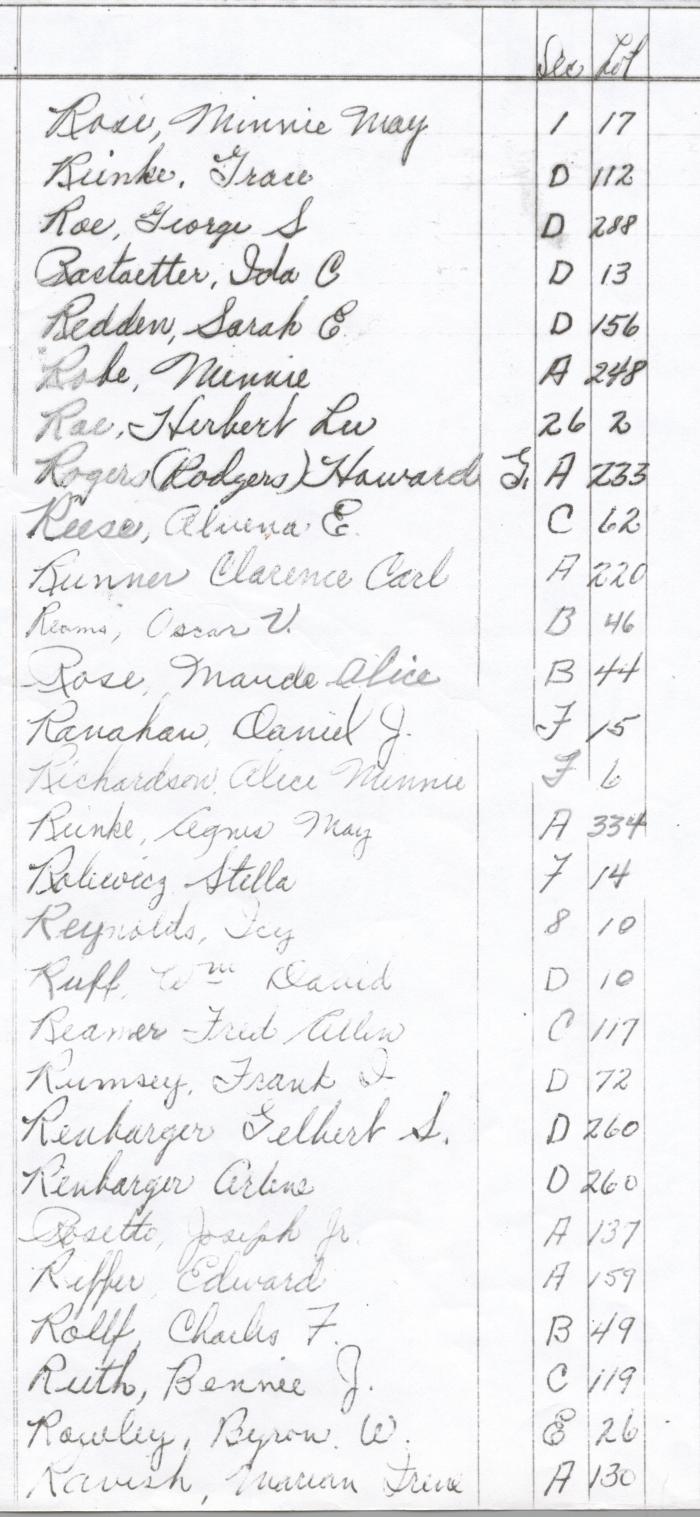 Sec Lot
Rose, Minnie May 1 17
Reinke, Grace D 112
Roe, George S D 288
Rastaetter, Ida C D 13
Redden, Sarah E D 156
Robe, Minnie A 248
Rae, Herbert Leu 26 2
Rogers (Rodgers) Howard G. A 233
Reese, Alvena E. C 62
Runner Clarence Carl A 220
Reams, Oscar V. B 46
Rose, Maude Alice B 44
Ranahan, Daniel J. F 15
Richardson, Alice Minnie F 6
Reinke, Agnes May A 334
Roliewicz Stella F 14
Reynolds, Icy 8 10
Ruff, Wm David D 10
Reamer Fred Allen C 117
Rumsey, Frank I D 72
Renbarger Gelbert S. D 260
Renbarger Arlene D 260
Rosetto, Joseph Jr. A 137
Riffer Edward A 159
Rollf, Charles F. B 49
Ruth, Bennie J. C 119
Rowley, Byron W. E 26
Ravish, Marian Irene A 130